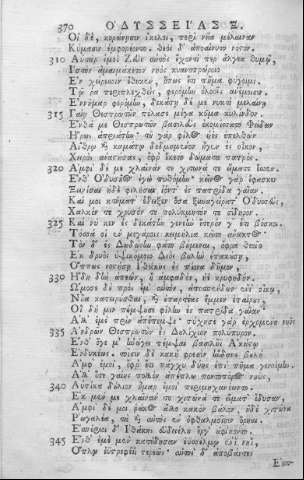 370 ΟΔΥΣΣΕΙΑΣ Ξ.
Οἱ δὲ, κορώνῃσιν ἴκελοι, περὶ νῆα μέλαιναν
Κύμασιν ἐμφορέοντο. θεὸς δ' ἀποαίνυτο νόστον.
310 Αὐτὰρ ἐμοὶ Ζεὺς αὐτὸς ἔχοντί περ ἄλγεα θυμῷ,
Ἱστὸν ἀμαιμάκετον νηὸς κυανοπρώροιο
Ἐν χείρεσσιν ἔθηκεν, ὅπως ἔτι πῆμα φύγοιμι.
Τῷ ῥα περιπλεχθεὶς, φερόμην ὀλοοῖς ἀνέμοισιν.
Ἐννῆμαρ φερόμην, δεκάτῃ δέ με νυκτὶ μελαίνῃ
315 Γαίῃ Θεσπρωτῶν πέλασε μέγα κῦμα κυλίνδον.
Ἔνθα με Θεσπρωτῶν βασιλεὺς ἐκομίσσατο Φείδων
Ἥρως ἀπριάτην· τοῦ γὰρ φίλος υἱὸς ἐπελθὼν
Αἴθρῳ καὶ καμάτῳ δεδμημένον ἦγεν ἐς οἶκον,
Χειρὸς ἀναστήσας, ὄφρ' ἵκετο δώματα πατρός.
320 Ἀμφὶ δέ με χλαῖνάν τε χιτῶνά τε εἵματα ἕσσεν.
Ἔνθ' Ὀδυσῆος ἐγὼ πυθόμην· κεῖνος γὰρ ἔφασκε
Ξεινίσαι ἠδὲ φιλῆσαι ἰόντ' ἐς πατρίδα γαῖαν.
Καί μοι κτήματ' ἔδειξεν ὅσα ξυναγείρατ' Ὀδυσσεὺς,
Χαλκόν τε χρυσόν τε πολύκμητόν τε σίδηρον.
325 Καί νύ κεν ἐς δεκάτην γενεὴν ἕτερόν γ' ἔτι βόσκοι.
Τόσσα οἱ ἐν μεγάροις κειμήλια κεῖτο ἄνακτος.
Τὸν δ' ἐς Δωδώνην φάτο βήμεναι, ὄφρα θεοῖο
Ἐκ δρυὸς ὑψικόμοιο Διὸς βουλὴν ἐπακούσῃ,
Ὅππως νοστήσῃ Ἰθάκης ἐς πίονα δῆμον,
330 Ἤδη δὴν ἀπεὼν, ἢ ἀμφαδὸν, ἠὲ κρυφηδόν.
Ὤμοσε δὲ πρὸς ἔμ' αὐτὸν, ἀποσπένδων ἐνὶ οἴκῳ,
Νῆα κατειρύσθαι, καὶ ἐπαρτέας ἔμμεν ἑταίρους,
Οἳ δή μιν πέμψουσι φίλην ἐς πατρίδα γαῖαν.
Ἀλλ' ἐμὲ πρὶν ἀπέπεμψε· τύχησε γὰρ ἐρχομένη νηῦς
335 Ἀνδρῶν Θεσπρωτῶν ἐς Δουλίχιον πολύπυρον.
Ἔνθ' ὅγε μ' ἠνώγει πέμψαι βασιλῆϊ Ἀκάστῳ
Ἐνδυκέως· τοῖσιν δὲ κακὴ φρεσὶν ἥνδανε βουλὴ
Ἀμφ' ἐμοὶ, ὄφρ' ἔτι πάγχυ δύης ἐπὶ πῆμα γενοίμην.
Ἀλλ' ὅτε γαίης πολλὸν ἀπέπλω ποντοπόρος νηῦς,
340 Αὐτίκα δούλιον ἦμαρ ἐμοὶ περιμηχανόωντο.
Ἐκ μέν με χλαῖνάν τε χιτῶνά τε εἵματ' ἔδυσαν,
Ἀμφὶ δέ μοι ῥάκος ἄλλο κακὸν βάλον, ἠδὲ χιτῶνα
Ῥωγαλέα, τὰ καὶ αὐτὸς ἐν ὀφθαλμοῖσιν ὅρηαι.
Ἑσπέριοι δ' Ἰθάκης εὐδειέλου ἔργ' ἀφίκοντο.
345 Ἔνθ' ἐμὲ μὲν κατέδησαν ἐϋσσέλμῳ ἐνὶ νηῒ,
Ὅπλῳ ἐϋστρεφέϊ στερεῶς· αὐτοὶ δ' ἀποβάντες